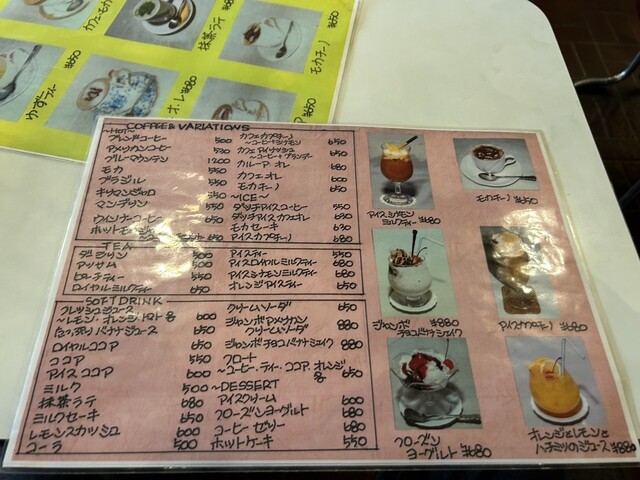 カフェモカ
抹茶ラテ ¥680
モカチーノ ¥650
ゆずティー ¥650
オ・レ ¥680
COFFEE & VARIATIONS
~HOT~
ブレンドコーヒー 500
アメリカンコーヒー 530
ブルーマウンテン 1200
モカ 550
ブラジル 550
キリマンジャロ 550
マンデリン 550
ウィンナーコーヒー 650
カフェカプチーノ
~コーヒーシナモン 650
カフェアイリッシュ
~コーヒーブランデー 650
カルーア オレ 680
カフェオレ 600
モカチーノ 650
~ICE~
ダッチアイスコーヒー 550
ダッチアイスカフェオレ 630
モカセーキ 630
アイスカプチーノ 680
TEA
ダージリン 500
アッサム
ロイヤルミルクティー 650
アイスティー 550
アイスロイヤルミルクティー 680
アイスシナモンミルクティー 680
オレンジアイスティー 650
SOFT DRINK
フレッシュジュース
~レモン・オレンジ・トマト 各 600
バナナジュース 650
ロイヤルココア 650
ココア 550
アイスココア 600
ミルク 500
抹茶ラテ 680
ミルクセーキ 650
レモンスカッシュ 600
コーラ 500
クリームソーダ 650
ジャンボアメリカン
クリームソーダ 880
ジャンボチョコバナナシェイク 880
フロート
~コーヒー・ティー・ココア・オレンジ 各 650
~DESSERT
アイスクリーム 600
フローズンヨーグルト 680
コーヒーゼリー 680
ホットケーキ 550
アイスシナモン
ミルクティー ¥680
モカチーノ ¥650
ジャンボ ¥880
チョコバナナシェイク
アイスカプチーノ ¥680
フローズン
ヨーグルト ¥680
オレンジとレモンと
ハチミツのジュース ¥880